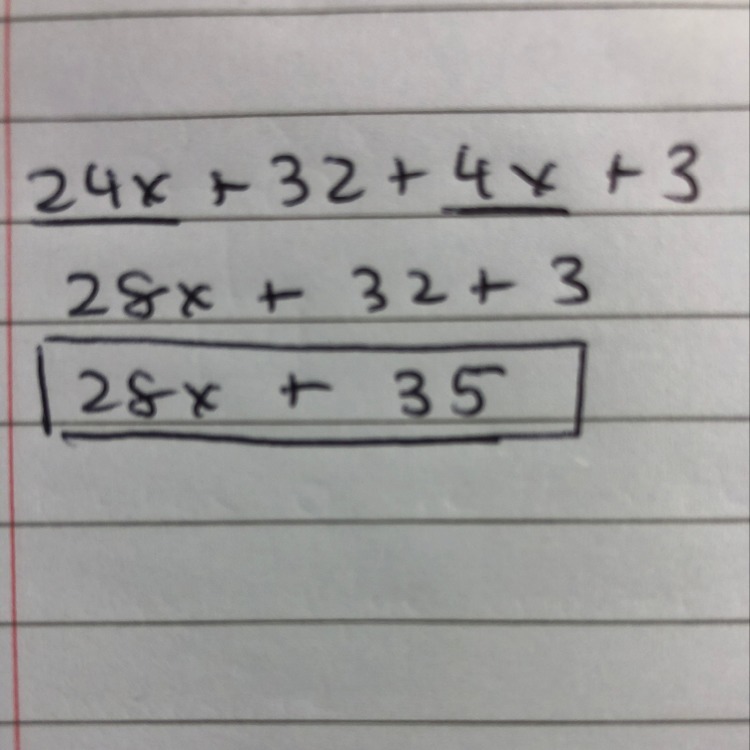 24x + 32 + 4x + 3
28x + 32 + 3
28x + 35